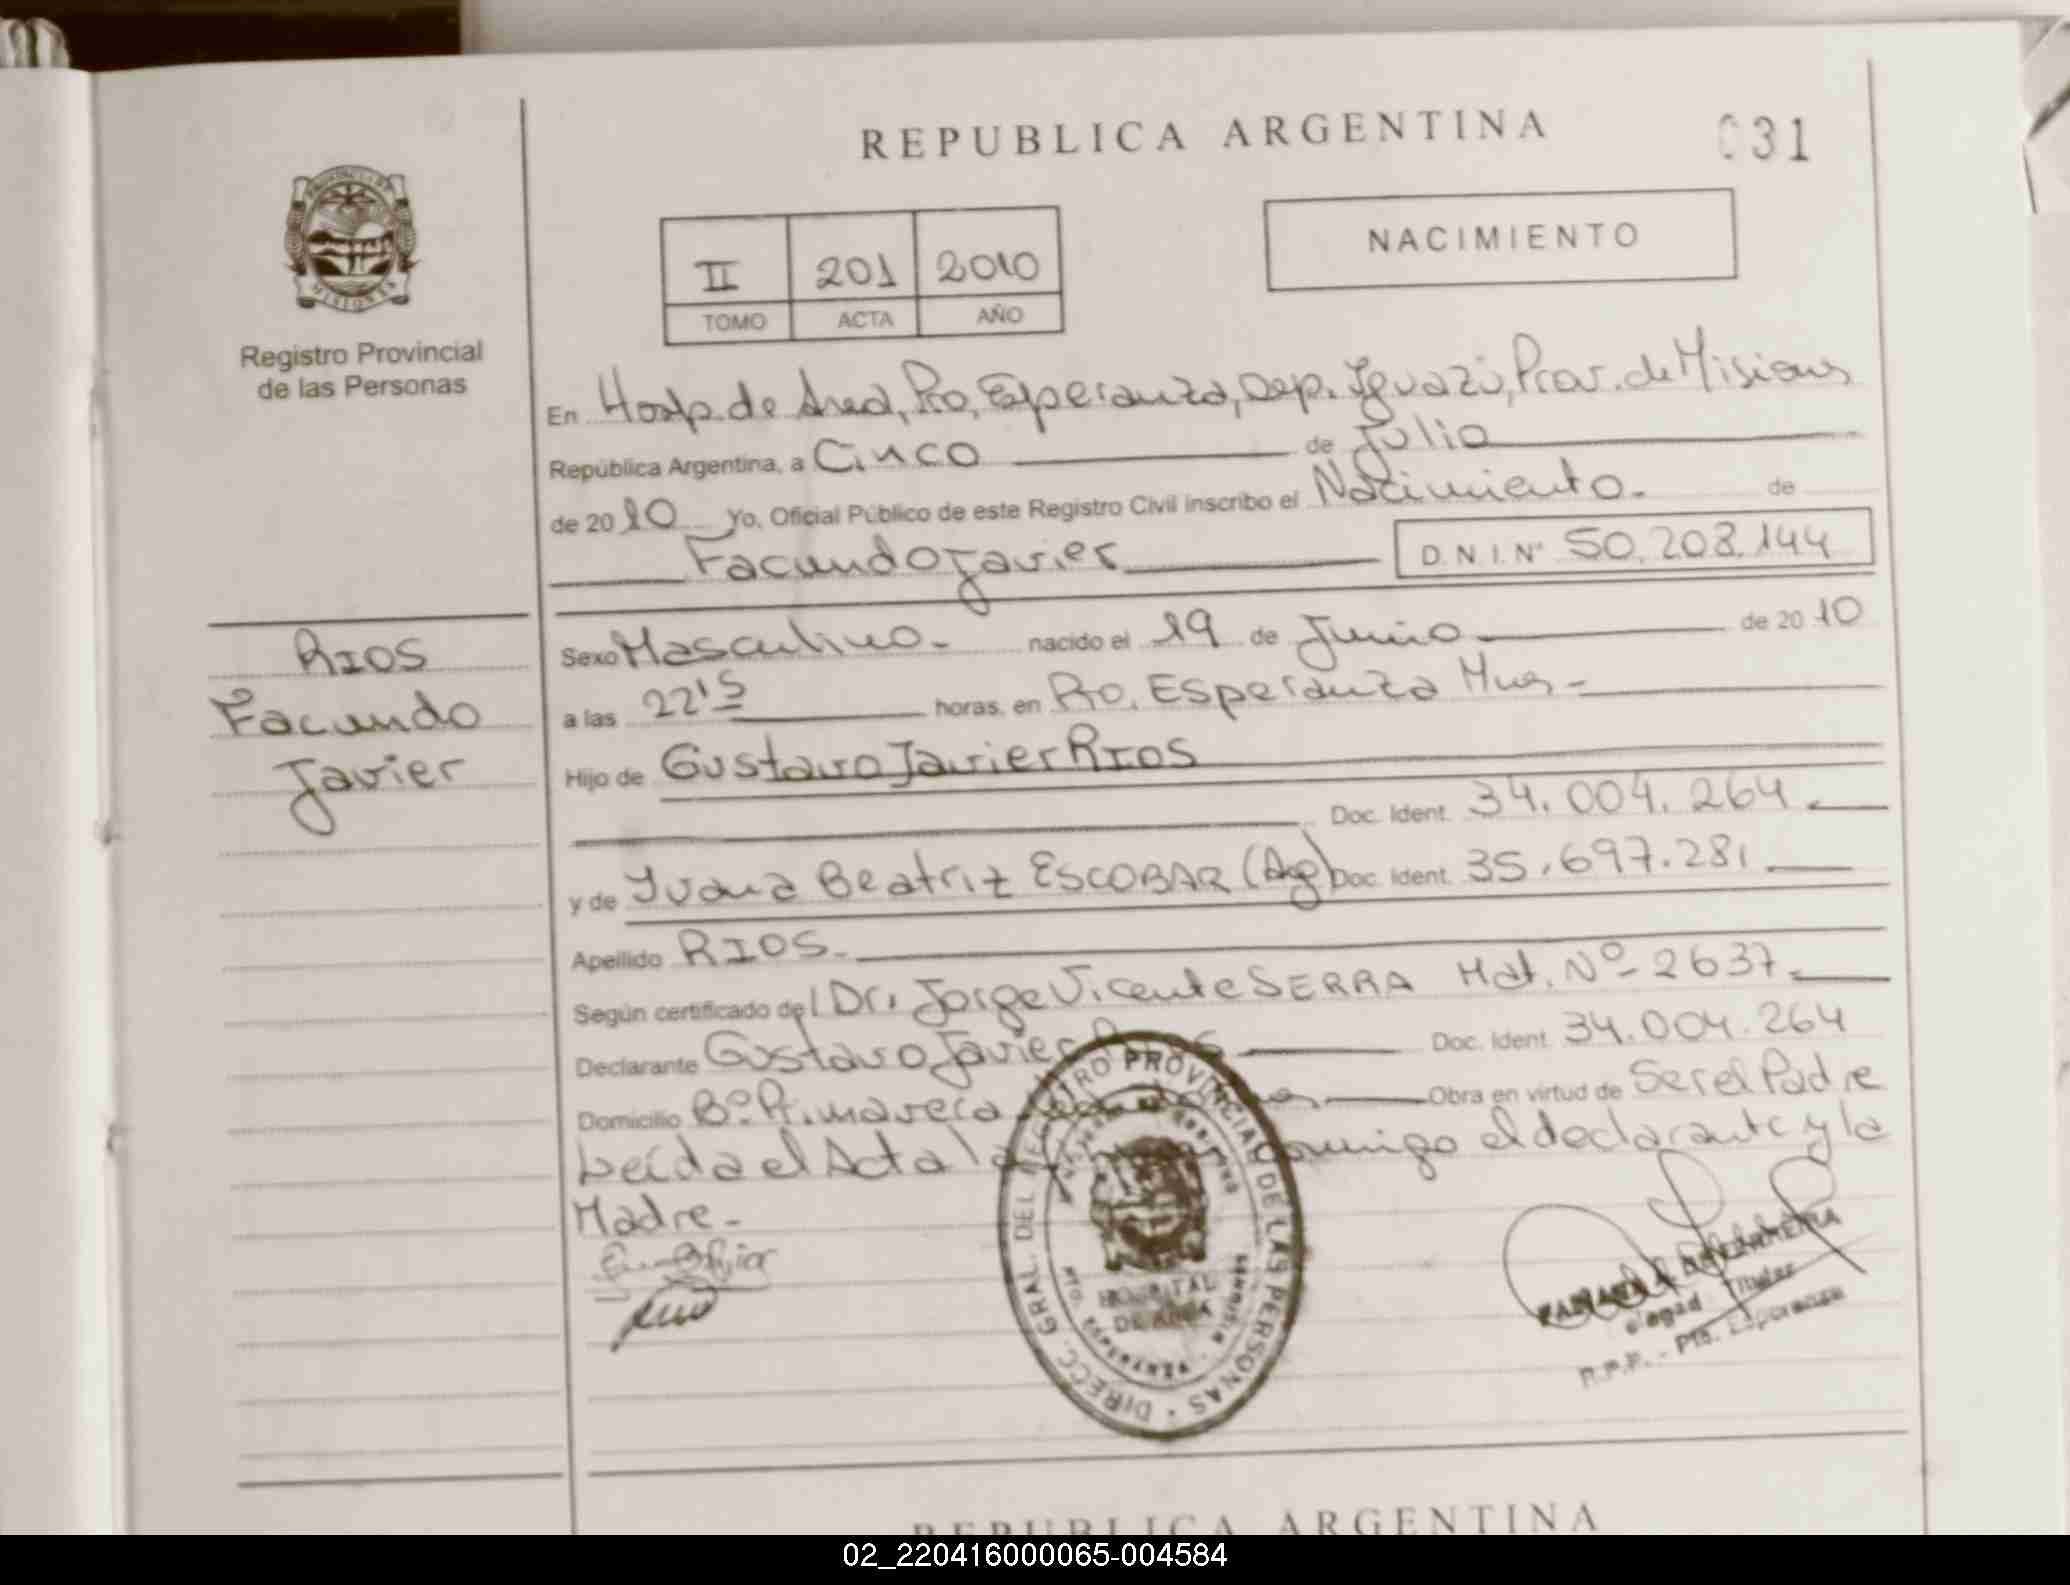 REPUBLICA ARGENTINA
031
PROVINCIA DE
MISIONES
Registro Provincial
de las Personas
II 201 2010
TOMO ACTA AÑO
NACIMIENTO
En Hosp. de Area, Pto, Esperanza, Dep. Iguazú, Prov. de Misiones
República Argentina, a Cinco de Julio
de 2010 Yo, Oficial Público de este Registro Civil inscribo el Nacimiento. de
Facundo Javier D.N.I.Nº 50.208.144
RIOS
Facundo
Javier
Sexo Masculino. nacido el 19 de Junio de 2010
a las 22'5 horas, en Pto. Esperanza Mnes-
Hijo de Gustavo Javier RIOS
Doc. Ident. 34.004.264.
y de Ivana Beatriz ESCOBAR (Ag) Doc. Ident. 35.697.281
Apellido RIOS.
Según certificado del Dr. Jorge Vicente SERRA Mat. Nº 2637.
Declarante Gustavo Javier Rios Doc. Ident. 34.004.264
Domicilio Bº Primavera Obra en virtud de Ser el Padre
Leida el Acta la conmigo el declarante y la
Madre.
DIRECC. GRAL. DEL REGISTRO PROVINCIAL DE LAS PERSONAS
HOSPITAL
DE AREA
PTO. ESPERANZA - MISIONES
Titular
R.P.P. - Pto. Esperanza
REPUBLICA ARGENTINA
02_220416000065-004584